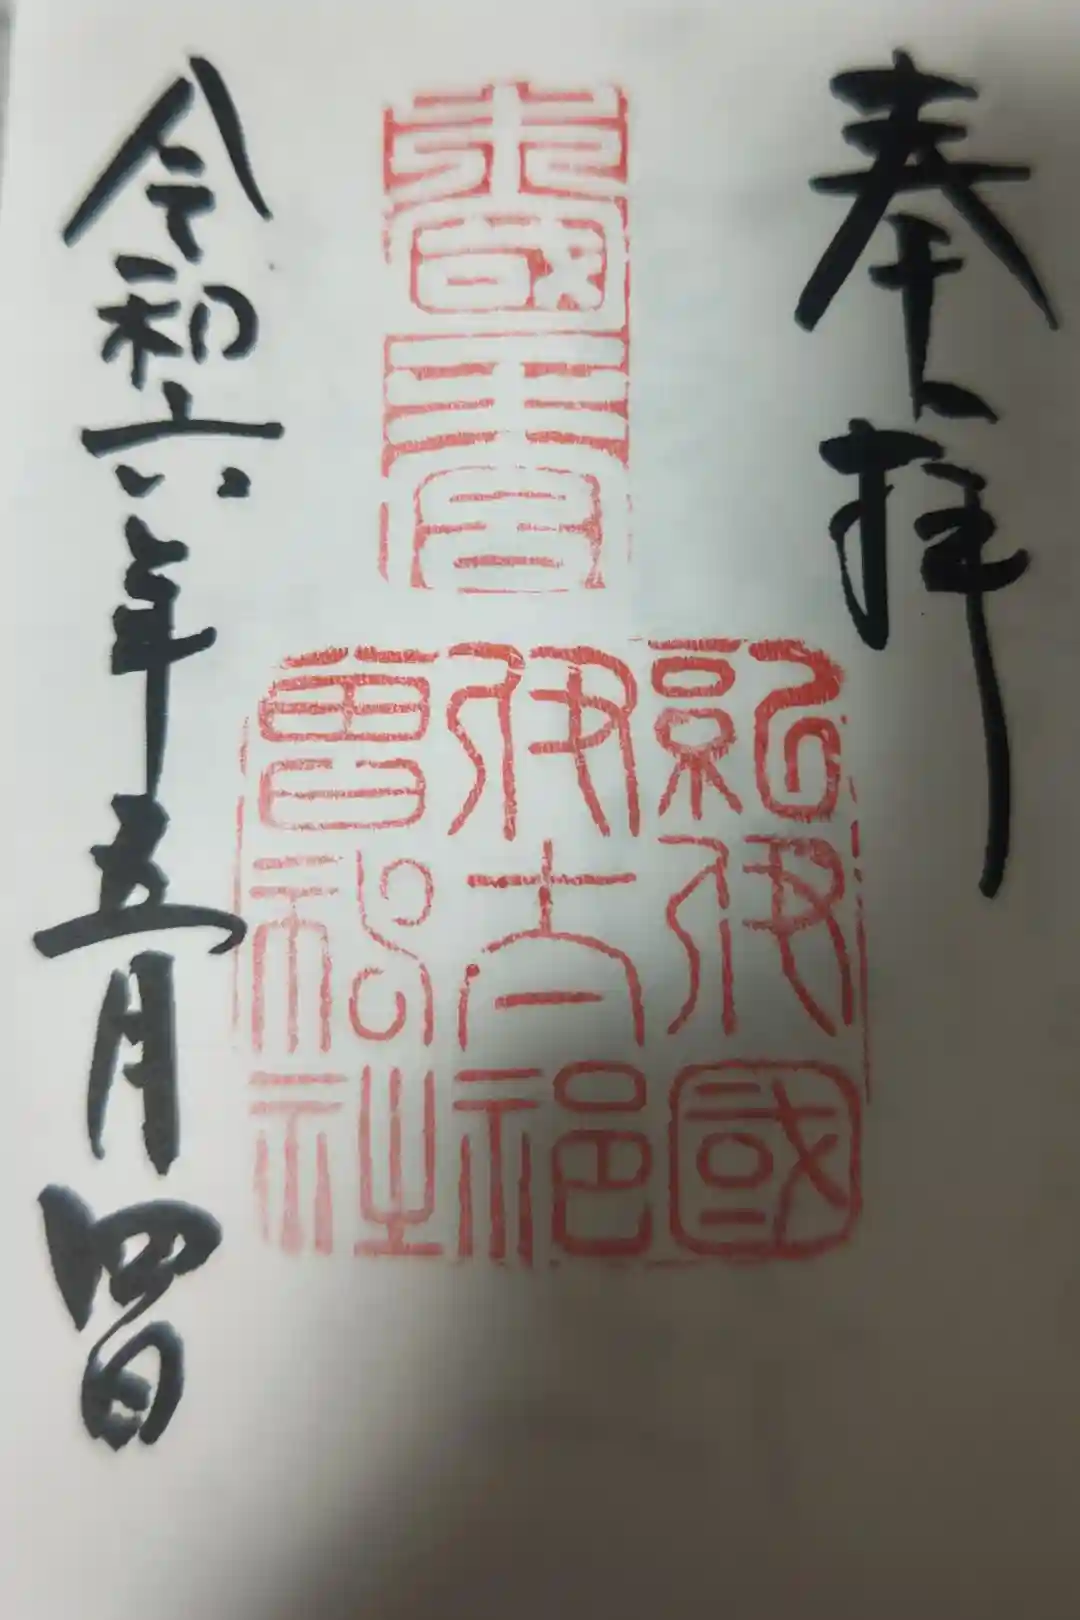 奉拝
紀伊國
伊太祁
曾神社
令和六年五月四日